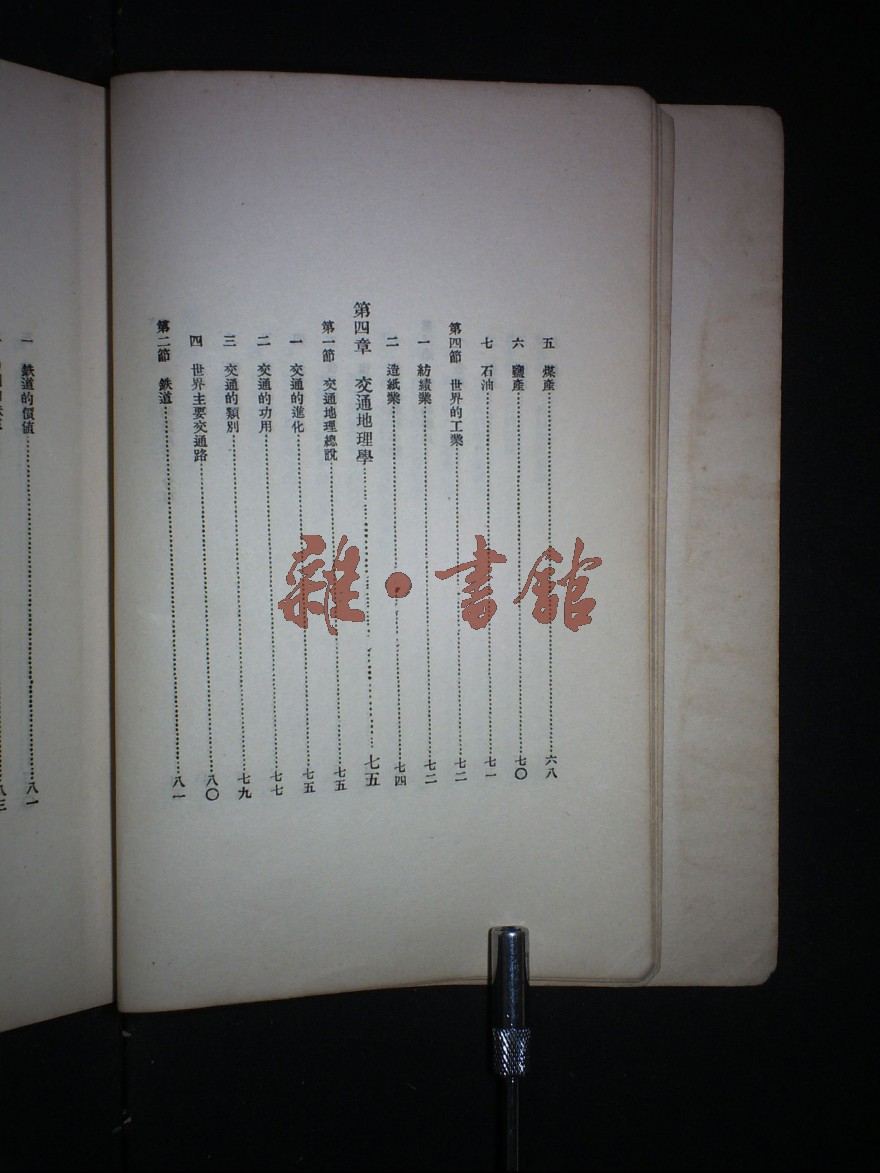 五　煤產………六八
六　鹽產………七〇
七　石油………七一
第四節　世界的工業………七二
一　紡績業………七二
二　造紙業………七四
第四章　交通地理學………七五
第一節　交通地理總說………七五
一　交通的進化………七五
二　交通的功用………七七
三　交通的類別………七九
四　世界主要交通路………八〇
第二節　鉄道………八一
一　鉄道的價値………八一
八三
雜·書館